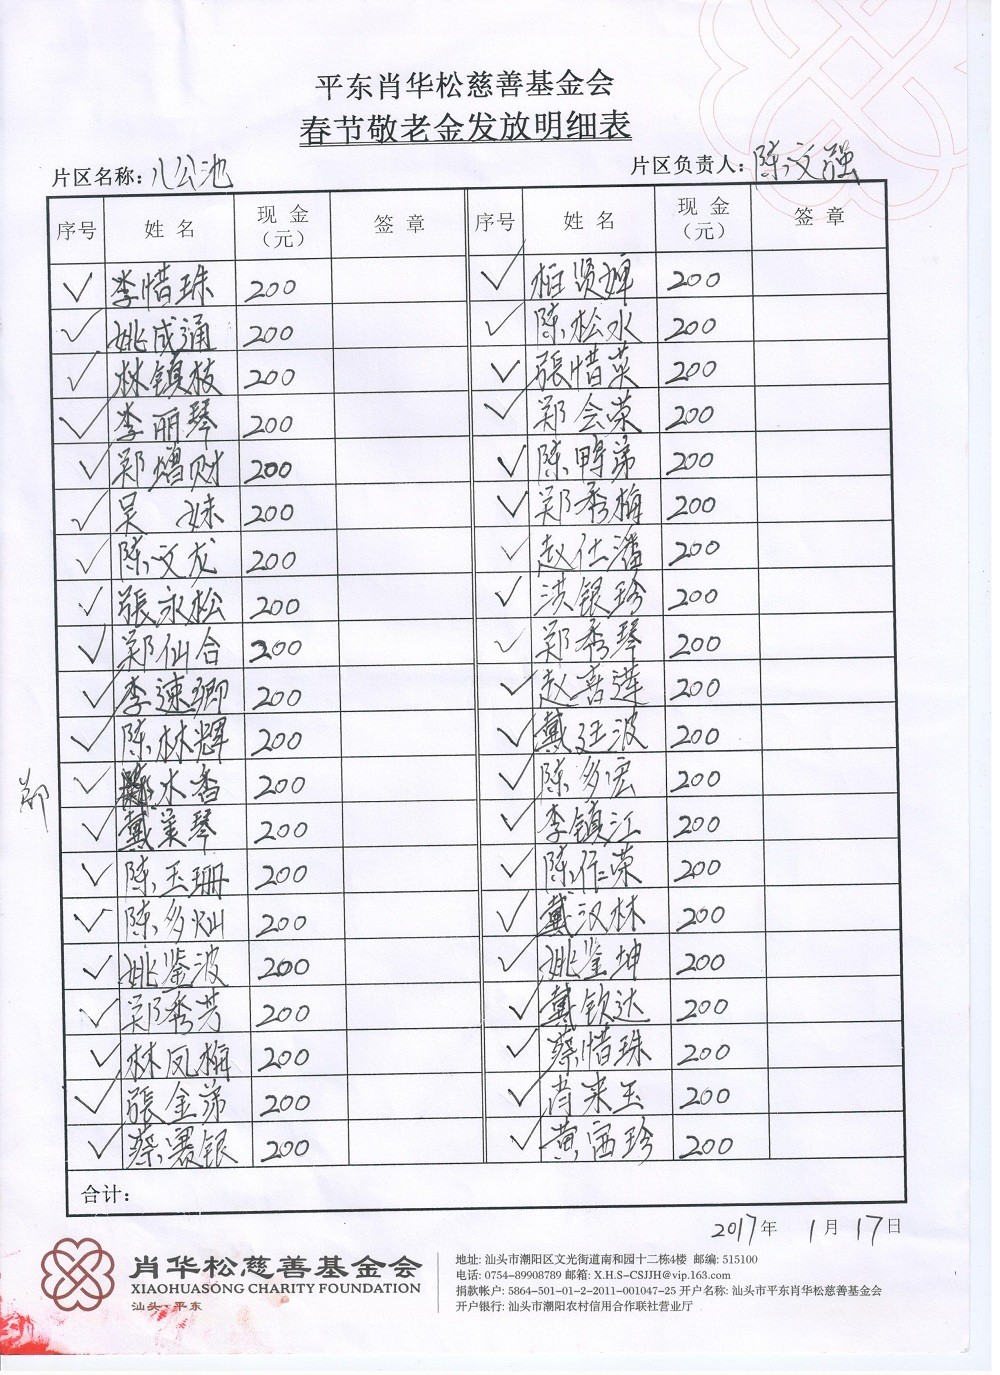 平东肖华松慈善基金会
春节敬老金发放明细表
片区名称: 八公池 片区负责人: 陈文强
序号 姓名 现金（元） 签章 序号 姓名 现金（元） 签章
✓ 李惜珠 200 ✓ 贤婵 200
✓ 姚成通 200 ✓ 陈松水 200
✓ 林镇枝 200 ✓ 張惜英 200
✓ 李丽琴 200 ✓ 郑会荣 200
✓ 郑增财 200 ✓ 陈鸭弟 200
✓ 吴妹 200 ✓ 郑秀梅 200
✓ 陈文龙 200 ✓ 赵仕潘 200
✓ 張永松 200 ✓ 洪银珍 200
✓ 郑仙合 200 ✓ 郑秀琴 200
✓ 李速卿 200 ✓ 赵喜莲 200
✓ 陈林辉 200 ✓ 戴廷波 200
郑 ✓ 水香 200 ✓ 陈多宏 200
✓ 戴美琴 200 ✓ 李镇江 200
✓ 陈玉珊 200 ✓ 陈作荣 200
✓ 陈多灿 200 ✓ 戴汉林 200
✓ 姚鉴波 200 ✓ 姚鉴坤 200
✓ 郑秀芳 200 ✓ 戴钦达 200
✓ 林凤梅 200 ✓ 蔡惜珠 200
✓ 張金弟 200 ✓ 肖来玉 200
✓ 蔡赛银 200 ✓ 黄珍 200
合计:
2017年 1月 17日
肖华松慈善基金会
XIAOHUASONG CHARITY FOUNDATION
汕头·平东
地址: 汕头市潮阳区文光街道南和园十二栋4楼 邮编: 515100
电话: 0754-89908789 邮箱: X.H.S-CSJJH@vip.163.com
捐款帐户: 5864-501-01-2-2011-001047-25 开户名称: 汕头市平东肖华松慈善基金会
开户银行: 汕头市潮阳农村信用合作联社营业厅